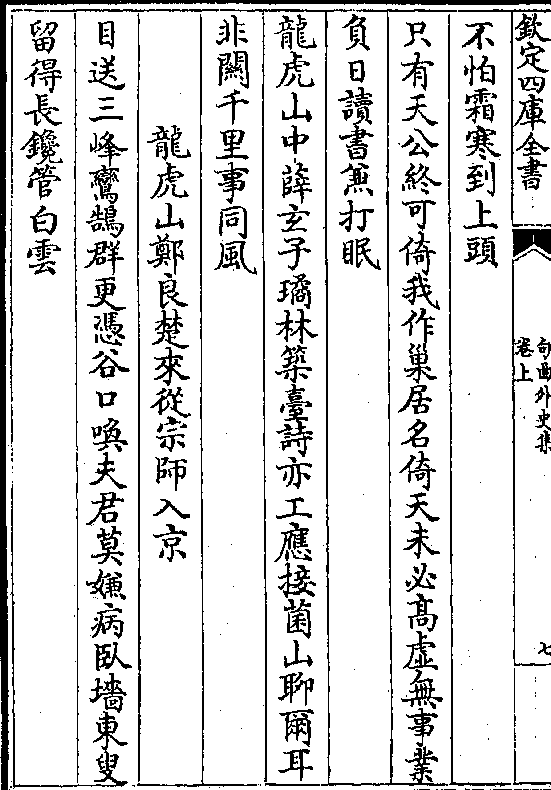 欽定四庫全書
句曲外史集
卷上
七
不怕霜寒到上頭
只有天公終可倚我作巢居名倚天未必髙虛無事業
負日讀書兼打眠
龍虎山中薛玄子璚林築臺詩亦工應接菌山聊爾耳
非闗千里事同風
龍虎山鄭良楚來從宗師入京
目送三峰鸞鵠群更憑谷口喚夫君莫嫌病臥墻東叟
留得長鑱管白雲